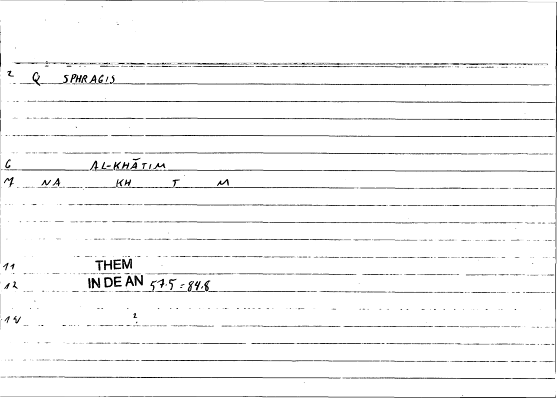 2 Q SPHRAGIS
6 AL-KHĀTIM
M NA KH T M
11 THEM
12 IN DE AN 57.5 = 84.8
14 2